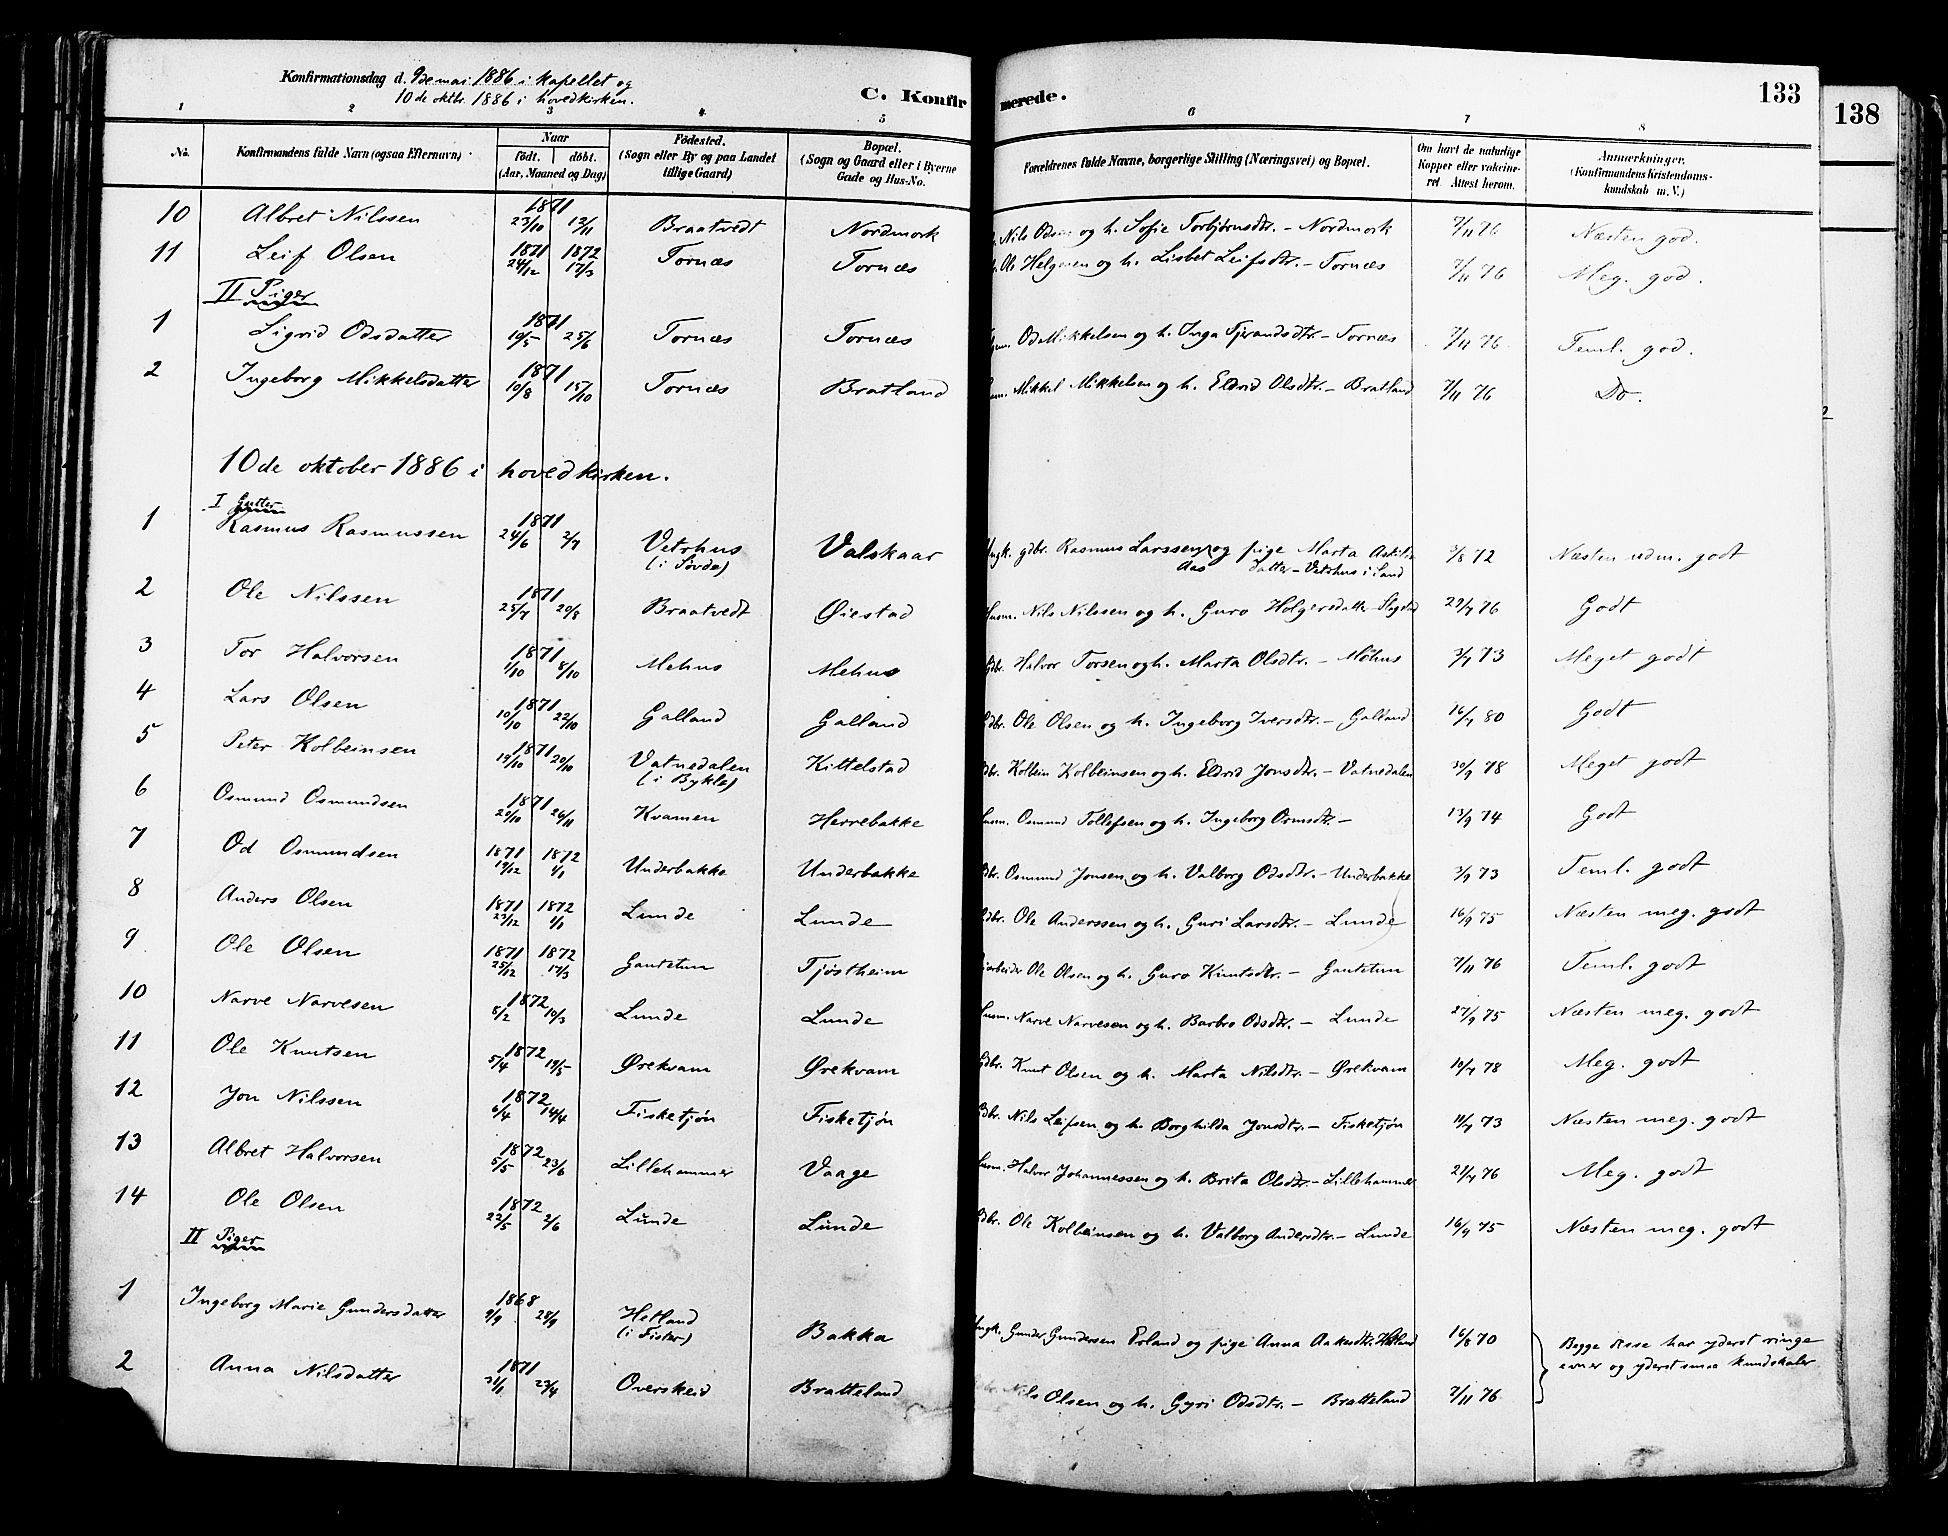 Konfirmationsdag d. 9de mai 1886 i kapellet og
10de oktbr. 1886 i hovedkirken.
C. Konfirmerede.
133
138
1 2 3 4 5 6 7 8
No. Konfirmandens fulde Navn (ogsaa Efternavn). Naar født. døbt. (Aar, Maaned og Dag) Fødested. (Sogn eller By og paa Landet tillige Gaard) Bopæl. (Sogn og Gaard eller i Byerne Gade og Hus-No. Forældrenes fulde Navne, borgerlige Stilling (Næringsvei) og Bopæl. Om havt de naturlige Kopper eller vakcineret. Attest herom. Anmerkninger. (Konfirmandens Kristendomskundskab m. V.)
10 Albret Nilssen 1871 23/10 12/11 Braatvedt Nordmork Nils Odsen og h. Sofie Torbjørnsdtr. – Nordmork 7/11 76 Næsten god.
11 Leif Olsen 1871 24/12 1872 17/3 Tornæs Tornæs Ole Helgesen og h. Lisbet Leifsdtr. – Tornæs 7/11 76 Meg. god.
II Piger
1 Sigrid Odsdatter 1871 19/5 25/6 Tornæs Tornæs Od Mikkelsen og h. Inga Tjerandsdtr. – Tornæs 7/11 76 Teml. god.
2 Ingeborg Mikkelsdatter 1871 10/8 15/10 Tornæs Bratland Mikkel Mikkelsen og h. Eldrid Olsdtr. – Bratland 7/11 76 Do.
10de oktober 1886 i hovedkirken.
I Gutter
1 Rasmus Rasmussen 1871 24/6 2/7 Vetrhus (i Søvde) Valskaar Ungk. gdbr. Rasmus Larssen Aas og pige Marta datter – Vetrhus i Sand 3/8 72 Næsten udm. godt
2 Ole Nilssen 1871 25/7 20/8 Braatvedt Øiestad Husm. Nils Nilssen og h. Guro Holgersdatter 29/7 76 Godt
3 Tor Halvorsen 1871 1/10 8/10 Mehus Mehus Gdbr. Halvor Torsen og h. Marta Olsdtr. – Mehus 3/7 73 Meget godt
4 Lars Olsen 1871 10/10 22/10 Galland Galland Gdbr. Ole Olsen og h. Ingeborg Iversdtr. – Galland 16/7 80 Godt
5 Peter Kolbeinsen 1871 19/10 20/10 Vatnedalen (i Bykle) Kittelstad Gdbr. Kolbein Kolbeinsen og h. Eldrid Jonsdtr. – Vatnedalen 30/9 78 Meget godt
6 Osmund Osmundsen 1871 29/10 26/11 Kvamen Herrebakke Husm. Osmund Tollefsen og h. Ingeborg Ormsdtr. – 13/9 74 Godt
7 Od Osmundsen 1871 19/12 1872 1/1 Underbakke Underbakke Gdbr. Osmund Jonsen og h. Valborg Odsdtr. – Underbakke 3/9 73 Teml. godt
8 Anders Olsen 1871 23/12 1872 1/1 Lunde Lunde Gdbr. Ole Anderssen og h. Guri Larsdtr. – Lunde 16/9 75 Næsten meg. godt
9 Ole Olsen 1871 25/12 1872 17/3 Gautetun Tjøstheim Ole Olsen og h. Guro Knutsdtr. – Gautetun 7/11 76 Teml. godt
10 Narve Narvesen 1872 5/2 10/3 Lunde Lunde Husm. Narve Narvesen og h. Barbro Odsdtr. – Lunde 27/9 75 Næsten meg. godt
11 Ole Knutsen 1872 5/4 19/5 Ørekvam Ørekvam Gdbr. Knut Olsen og h. Marta Nilsdtr. – Ørekvam 10/7 78 Meg. godt
12 Jon Nilssen 1872 6/4 14/4 Fisketjøn Fisketjøn Gdbr. Nils Leifsen og h. Borghilda Jonsdtr. – Fisketjøn 11/9 73 Næsten meg. godt
13 Albret Halvorsen 1872 5/5 23/6 Lillehammer Vaage Husm. Halvor Johannessen og h. Brita Olsdtr. – Lillehammer 21/7 76 Meg. godt
14 Ole Olsen 1872 22/5 2/6 Lunde Lunde Gdbr. Ole Kolbeinsen og h. Valborg Andersdtr. – Lunde 16/9 75 Næsten meg. godt
II Piger
1 Ingeborg Marie Gundersdatter 1868 9/9 28/9 Hetland (i Fister) Bakka Ungk. Gunder Gundersen Erland og pige Anna Aakudtr. Hetland 16/8 70 Begge disse har yderst ringe
evner og yderst smaa kundskaber
2 Anna Nilsdatter 1871 31/1 23/4 Overskeid Bratteland Gdbr. Nils Olsen og h. Gyri Odsdtr. – Bratteland 7/11 76